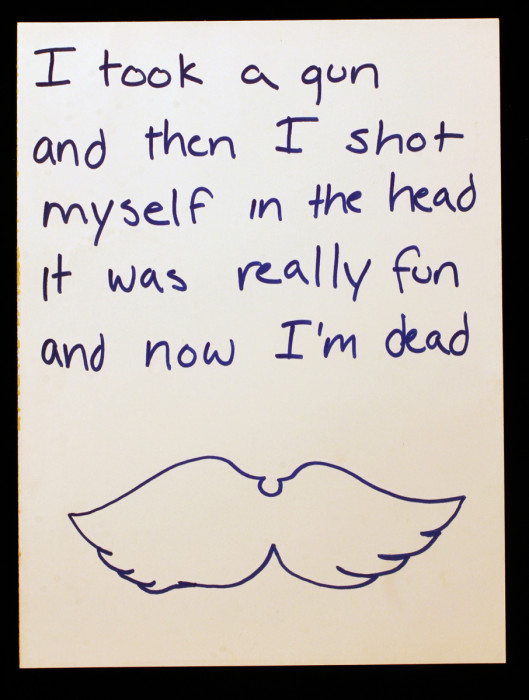 I took a gun
and then I shot
myself in the head
it was really fun
and now I'm dead